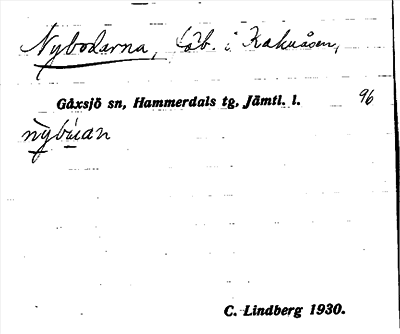 Nybodarna, fäb. i Kakuåsen,
Gåxsjö sn, Hammerdals tg, Jämtl. l. 96
C. Lindberg 1930.